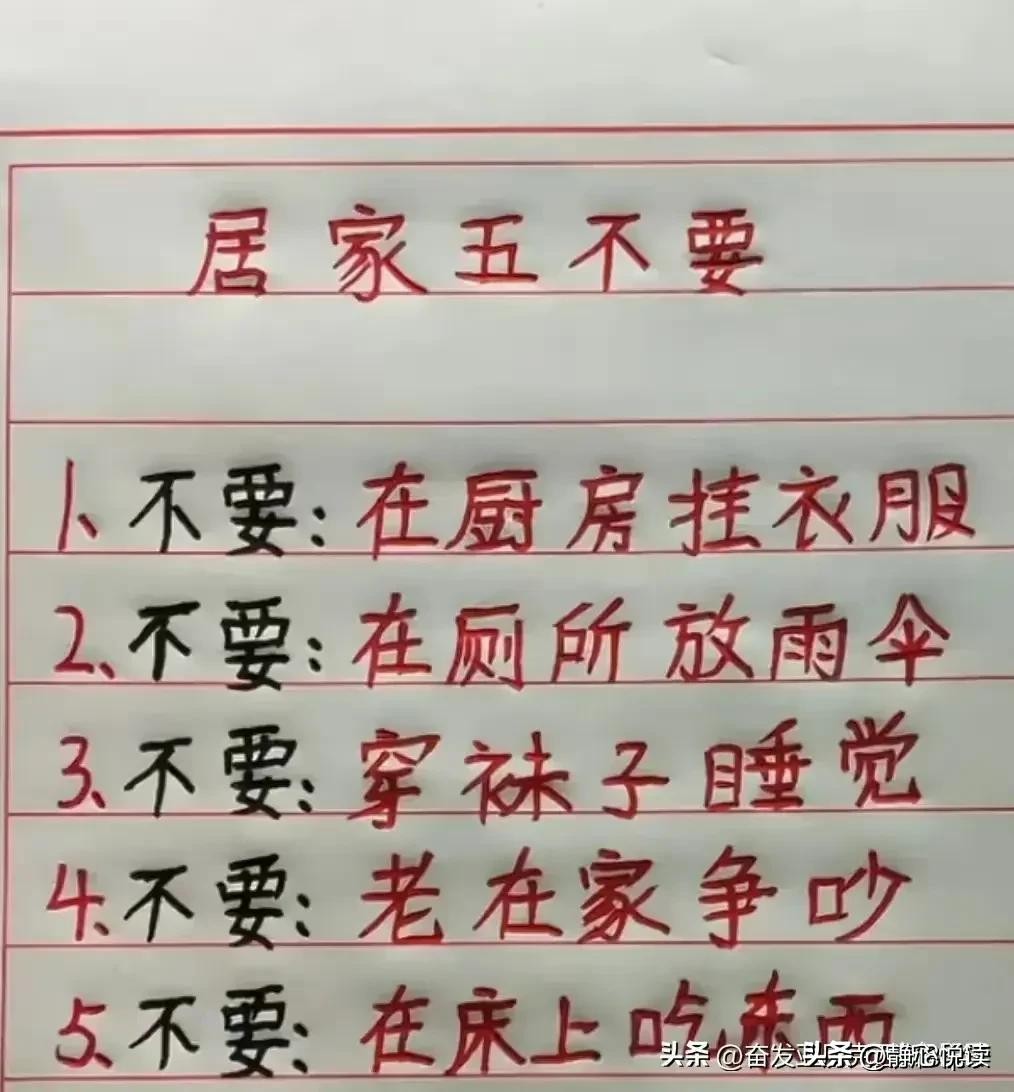 居家五不要
1、不要:在厨房挂衣服
2、不要:在厕所放雨伞
3、不要:穿袜子睡觉
4、不要:老在家争吵
5、不要:在床上吃东西
头条 @奋发 头条 @静心悦读